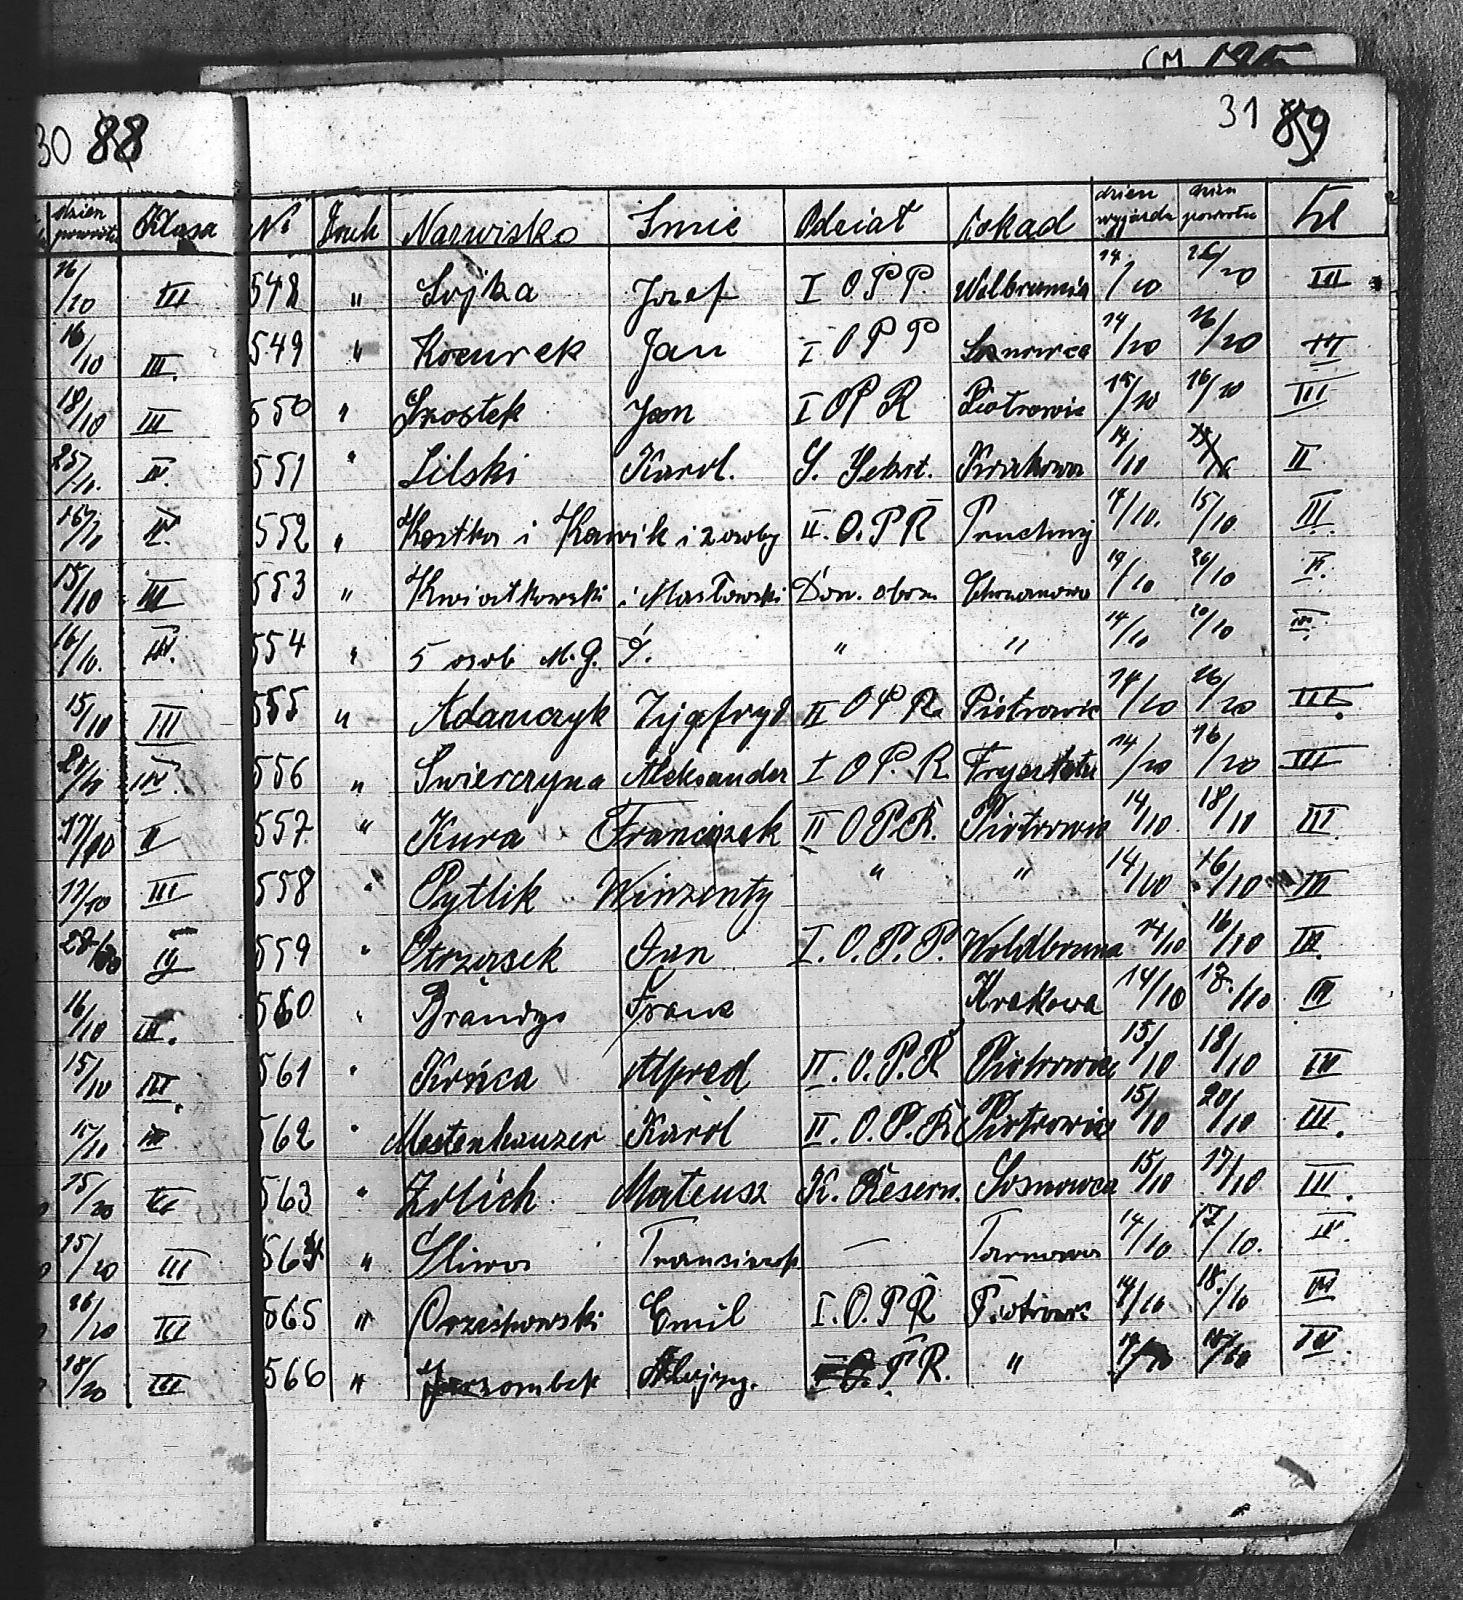 30 88
31 89
dzien powrotu Klasa
Nº Druh Nazwisko Imie Odział Dokąd dzien wyjazdu dzien powrotu Kl
16/10 III 548 " Sojka Jozef I O P P Wolbromia 14/10 III
16/10 III. 549 " Kocurek Jan I O P P Sosnowca 14/10 16/10 III
18/10 III 550 " Szostek Jan I O P R Piotrowic 15/10 16/10 III
25/10. 551 " Lilski Karol. S. Krakowa 14/10 II
552 " Kostka i Kawik i 2 osoby II. O. P R Pruchnej 14/10. 15/10 III.
15/10 III 553 " Kwiatkowski i Masłowski Dow. obozu 14/10
16/10. 554 " 5 osob M. G. Ś. " " 14/10 20/10
15/10 III 555 " Adamczyk Zygfryd II O P R. Piotrowic 14/10 16/10 III.
556 " Swierczyna Aleksander I O P. R Frysztatu 14/10 16/10 III
17/10 II 557. " Kura Franciszek II O P. R. Piotrowic 14/10 18/10 III.
17/10 III 558 " Pytlik Winzenty " " 14/10 16/10 III
559 " Otrząsek Jan I. O. P. P. Woldbroma 14/10 16/10 III.
16/10 III. 560 Brandys Franc Krakowa 14/10 18./10 III
15/10 III. 561 " Końca Alfred II. O. P. R Piotrowic 15/10 18/10 III
15/10 562 " Mestenhauzer Karol II. O. P. R. Piotrowic 15/10 20/10 III.
15/10 563 " Zolich Mateusz K. Reserw. Sosnowca 15/10 17/10 III.
15/10 III 564 " Śliwa Franciszek — Tarnowa 14/10 17/10.
16/10 III 565 " Orzechowski Emil I. O. P. R Piotrowic 14/10 18./10 III
18/10 III 566 " P. R. "